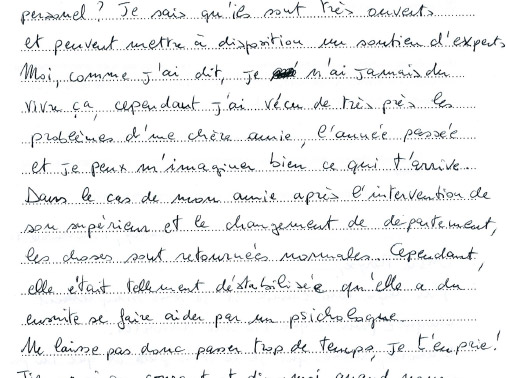 personnel ? Je sais qu'ils sont très ouverts
et peuvent mettre à disposition un soutien d'experts
Moi, comme j'ai dit, je n'ai jamais du
vivre ça, cependant j'ai vécu de très près les
problèmes d'une chère amie, l'année passée
et je peux m'imaginer bien ce qui t'arrive.
Dans le cas de mon amie après l'intervention de
son supérieur et le changement de departement,
les choses sont retournées normales. Cependant,
elle était tellement déstabilisée qu'elle a du
ensuite se faire aider par un psichologue.
Ne laisse pas donc passer trop de temps, je t'en prie !